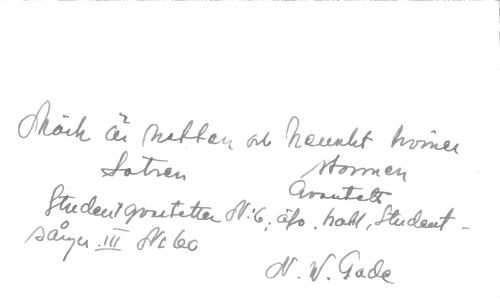 Mörk är natten och hemskt hviner
stormen
Qvartett
Studentqvartetter N:6, äfv. hall, Student-
sånger III N:60
N. W. Gade